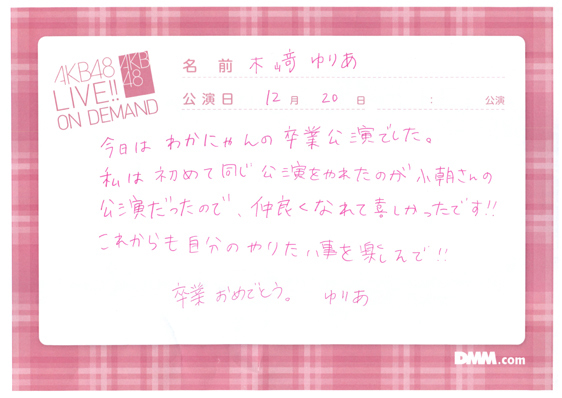 AKB48
LIVE!!
ON DEMAND
AKB
48
名前 木﨑ゆりあ
公演日 12月 20日 : 公演
今日は わかにゃんの 卒業公演でした。
私は 初めて同じ 公演をやれたのが 小朝さんの
公演だったので、仲良くなれて喜しかったです!!
これからも自分のやりたい事を楽しんで!!
卒業おめでとう。 ゆりあ
DMM.com